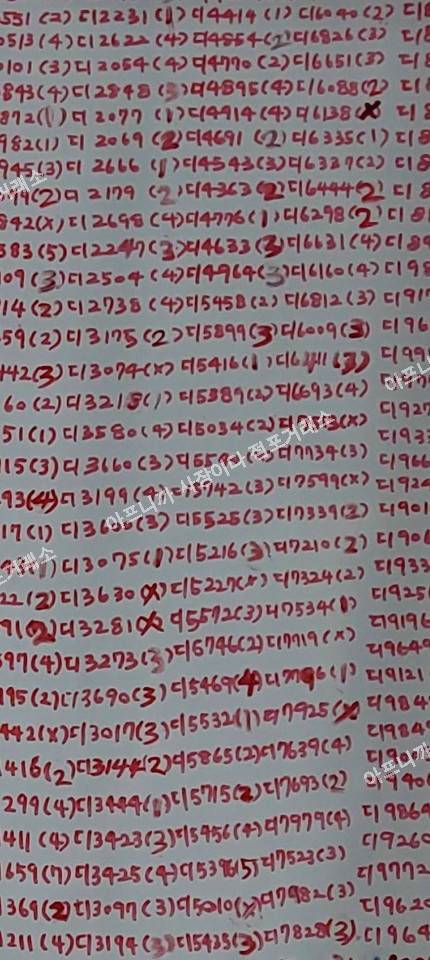 551 (2) 디2231 (1) 디4414 (1) 디6040 (2) 디8
0513 (4) 디2622 (4) 디4854 (2) 디6826 (3) 디8
0101 (3) 디2054 (4) 디4770 (2) 디6651 (3) 디8
843 (4) 디2848 (3) 디4895 (4) 디6088 (2) 디8
872 (1) 디2077 (1) 디4914 (4) 디6138 (x) 디8
982 (1) 디2069 (2) 디4691 (2) 디6335 (1) 디8
945 (3) 디2666 (1) 디4543 (3) 디6327 (2) 디8
디2179 (2) 디4363 (2) 디6444 (2) 디8
842 (x) 디2698 (4) 디4776 (1) 디6298 (2) 디8
583 (5) 디2247 (3) 디4633 (3) 디6631 (4) 디89
109 (3) 디2504 (4) 디4964 (3) 디6160 (4) 디98
714 (2) 디2738 (4) 디5458 (2) 디6812 (3) 디917
559 (2) 디3175 (2) 디5899 (3) 디6009 (3) 디96
442 (3) 디3074 (x) 디5416 (1) (3) 디99
60 (2) 디3215 (1) 디5389 (2) 디6693 (4)
51 (1) 디3580 (4) 디5034 (2) (x) 디927
115 (3) 디3660 (3) 디7734 (3) 디933
93 (4) 디3199 (4) 5742 (3) 디7599 (x) 디966
17 (1) (3) 디5525 (3) 디7339 (2) 디924
(1) 디3075 (1) 디5216 (3) 디7210 (2) 디901
22 (2) 디3630 (x) 디5227 (x) 디7324 (2) 디906
91 (2) 디3281 (x) 디5572 (3) 디7534 (1) 디933
597 (4) 디3273 (3) 디5746 (2) 디7719 (x) 디925
195 (2) 디3690 (3) 디5469 (4) (1) 디9196
442 (x) 디3017 (3) 디5532 (1) 디7925 (x) 디9649
416 (2) 디3144 (2) 디5865 (2) 디7639 (4) 디9121
299 (4) 디3444 (1) 디5715 (2) 디7693 (2) 디984
411 (4) 디3423 (3) 디5456 (4) 디7979 (4) 디9864
659 (7) 디3425 (4) (5) 디7523 (3) 디9260
369 (2) 디3097 (3) 디5010 (x) 디7982 (3) 디9772
211 (4) 디3194 (3) 디5435 (3) 디7828 (3) 디9620
디964
아프니까 사장이다 점포거래소